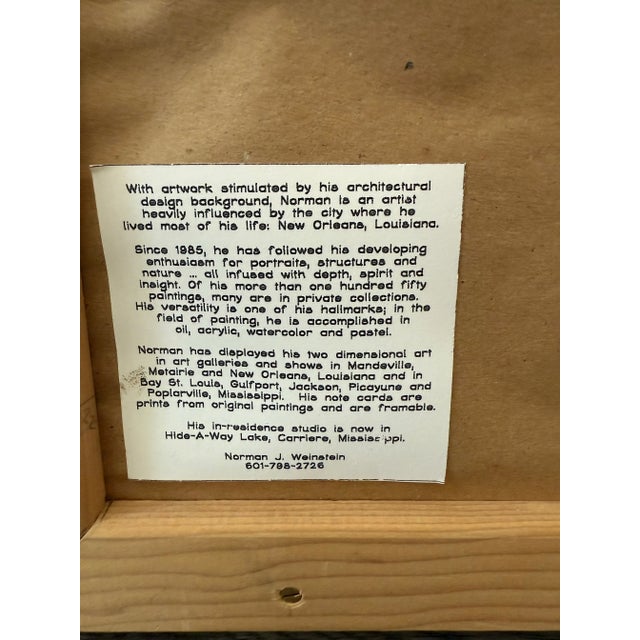 With artwork stimulated by his architectural
design background, Norman is an artist
heavily influenced by the city where he
lived most of his life: New Orleans, Louisiana.
Since 1985, he has followed his developing
enthusiasm for portraits, structures and
nature ... all infused with depth, spirit and
insight. Of his more than one hundred fifty
paintings, many are in private collections.
His versatility is one of his hallmarks; in the
field of painting, he is accomplished in
oil, acrylic, watercolor and pastel.
Norman has displayed his two dimensional art
in art galleries and shows in Mandeville,
Metairie and New Orleans, Louisiana and in
Bay St. Louis, Gulfport, Jackson, Picayune and
Poplarville, Mississippi. His note cards are
prints from original paintings and are framable.
His in-residence studio is now in
Hide-A-Way Lake, Carriere, Mississippi.
Norman J. Weinstein
601-798-2726